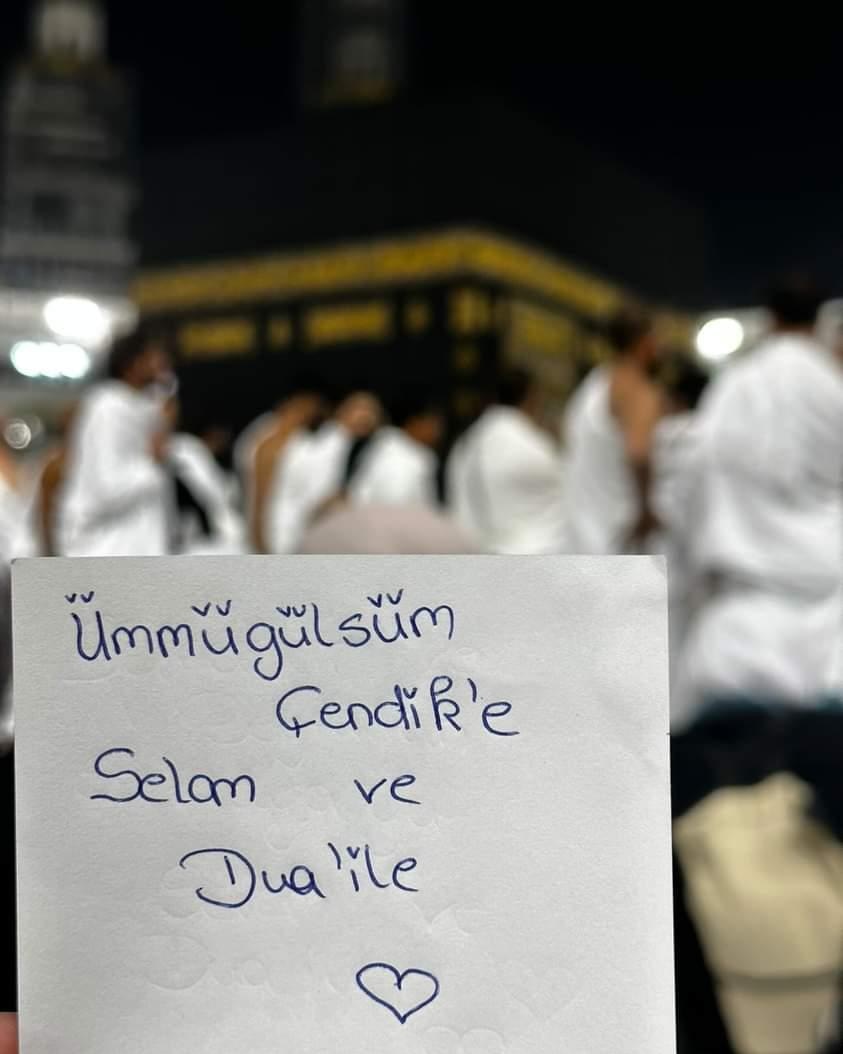 Ümmügülsüm
Çendik'e
Selam ve
Dua'ile